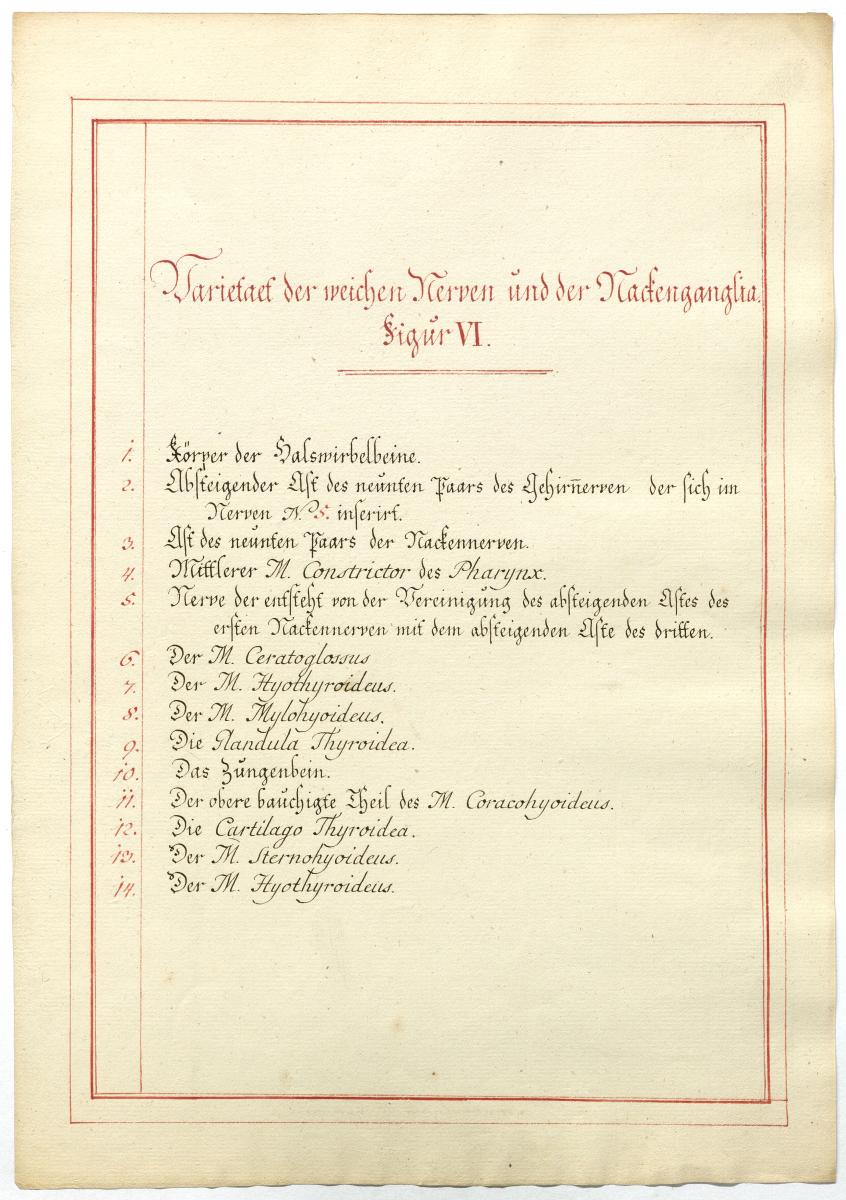 Varietaet der weichen Nerven und der Nackenganglia.
Figur VI.
1. Körper der Halswirbelbeine.
2. Absteigender Ast des neunten Paars des Gehirn̅erven der sich im
Nerven N.º 5. inserirt.
3. Ast des neunten Paars der Nackennerven.
4. Mittlerer M. Constrictor des Pharynx.
5. Nerve der entsteht von der Vereinigung des absteigenden Astes des
ersten Nackennerven mit dem absteigenden Aste des dritten.
6. Der M. Ceratoglossus
7. Der M. Hyothyroideus.
8. Der M. Mylohyoideus.
9. Die Glandula Thyroidea.
10. Das Zungenbein.
11. Der obere bauchigte Theil des M. Coracohyoideus.
12. Die Cartilago Thyroidea.
13. Der M. Sternohyoideus.
14. Der M. Hyothyroideus.